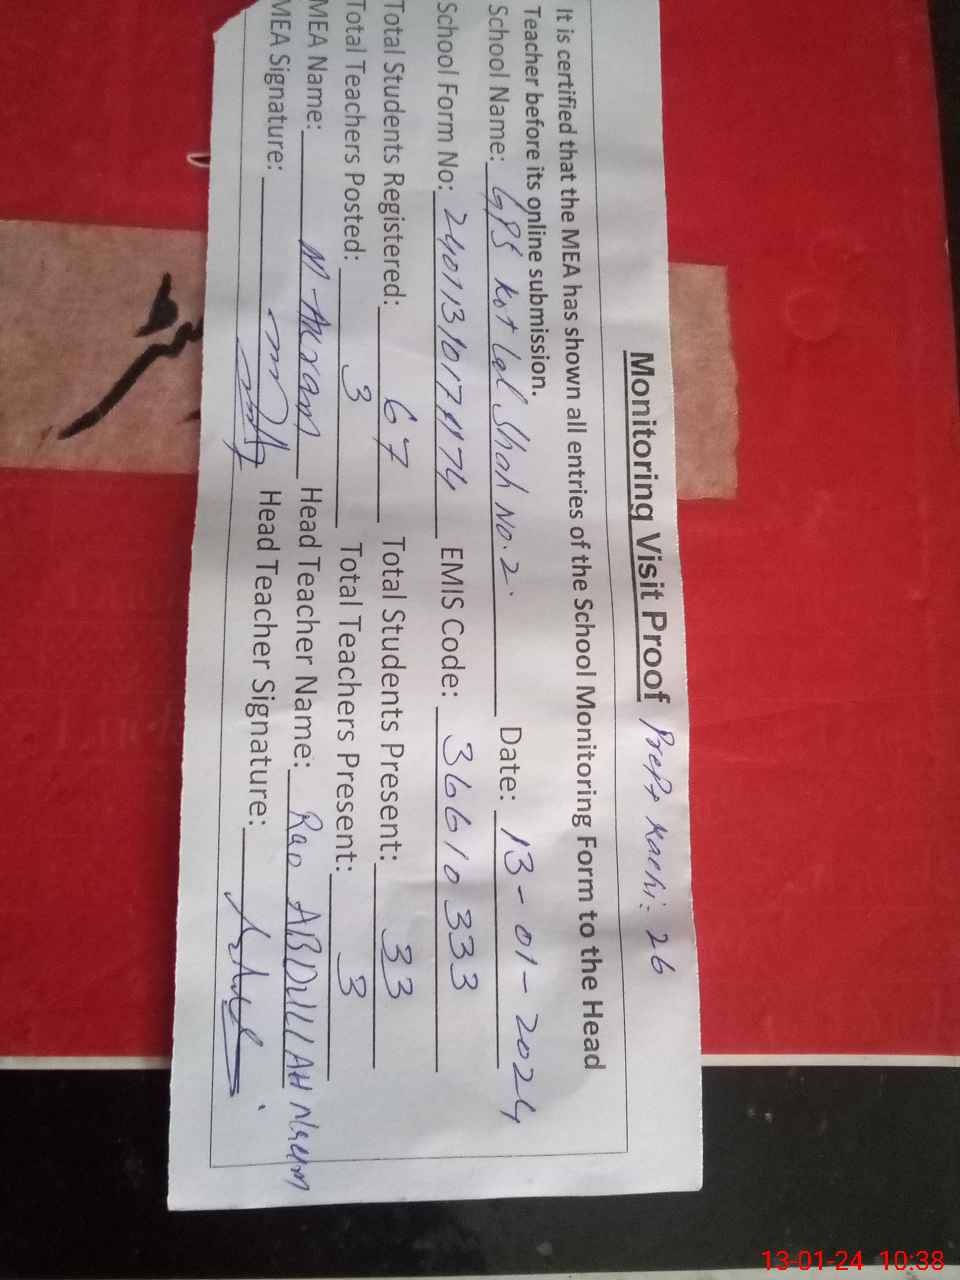 Monitoring Visit Proof Prep+ Kachi:- 26
It is certified that the MEA has shown all entries of the School Monitoring Form to the Head
Teacher before its online submission.
School Name: GPS Kot Lal Shah No.2. Date: 13-01-2024
School Form No: EMIS Code: 36610333
Total Students Registered: 67 Total Students Present: 33
Total Teachers Posted: 3 Total Teachers Present: 3
MEA Name: M. Akram Head Teacher Name: Rao ABDULLAH Naeem
MEA Signature: Head Teacher Signature:
13-01-24 10:38